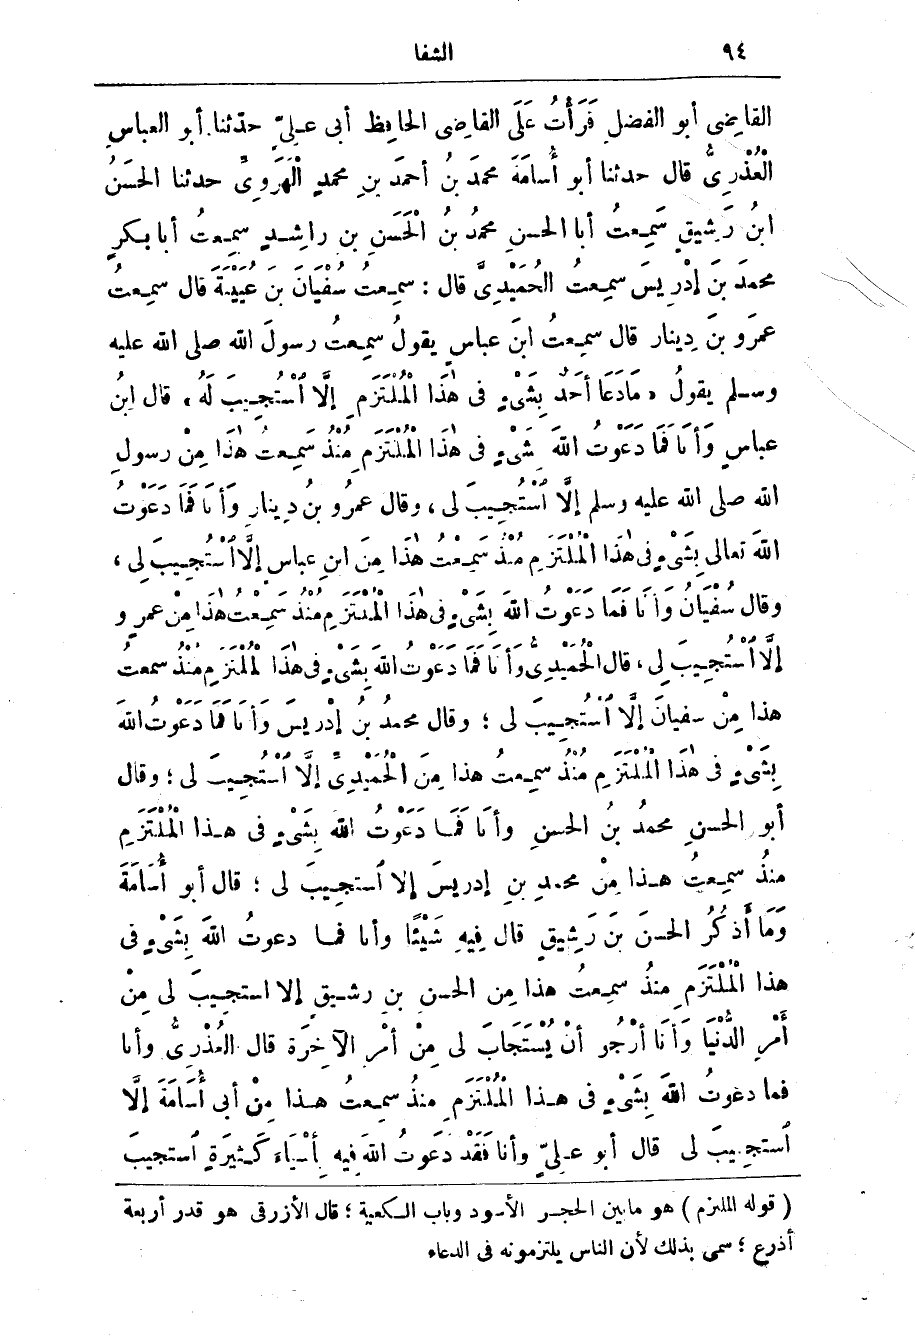 ٩٤
الشفا
القاضى أبو الفضل قَرَأْتُ عَلَى القاضى الحافِظِ أبى عـلىّ حدّثنا أبو العباسِ
الْعُذْرِىُّ قال حدثنا أبو أُسامَةَ محمدُ بنُ أحمدَ بنِ محمدٍ الْهَرَوِىُّ حدثنا الحسَنُ
ابنُ رَشِيقٍ سَمِعتُ أبا الحسنِ محمدَ بنَ الْحَسَنِ بنِ راشِـدٍ سمِعتُ أبا بكرٍ
محمدَ بنَ إدْرِيسَ سمِعتُ الحُمَيْدِىَّ قال : سمِعتُ سُفْيَانَ بنَ عُيَيْنَةَ قال سمِعتُ
عمرَو بنَ دِينارٍ قال سمِعتُ ابنَ عباسٍ يقولُ سمِعتُ رسولَ اللهِ صلى الله عليه
وسـلم يقولُ « مَادَعَا أحَدٌ بِشَىْءٍ فى هٰذَا الْمُلْتَزَمِ إلَّا اسْتُجِيبَ لَهُ ، قال ابنُ
عباسٍ وَأَنَا فَمَا دَعَوْتُ اللهَ بِشَىْءٍ فى هٰذَا الْمُلْتَزَمِ مُنْذُ سَمِعتُ هٰذَا مِنْ رسولِ
اللهِ صلى الله عليه وسلم إلَّا اسْتُجِيبَ لى ، وقال عمرُو بنُ دِينارٍ وَأَنَا فَمَا دَعَوْتُ
اللهَ تعالى بِشَىْءٍ فى هٰذَا الْمُلْتَزَمِ مُنْذُ سَمِعْتُ هٰذَا مِنَ ابنِ عباسٍ إلَّا اسْتُجِيبَ لى ،
وقال سُفْيَانُ وَأَنَا فَمَا دَعَوْتُ اللهَ بِشَىْءٍ فى هٰذَا الْمُلْتَزَمِ مُنْذُ سَمِعْتُ هٰذَا مِنْ عمرٍو
إلَّا اسْتُجِيبَ لى ، قال الْحُمَيْدِىُّ وَأَنَا فَمَا دَعَوْتُ اللهَ بِشَىْءٍ فى هٰذَا الْمُلْتَزَمِ مُنْذُ سمعتُ
هذا مِنْ سفيانَ إلَّا اسْتُجِيبَ لى ؛ وقال محمدُ بنُ إدْرِيسَ وَأَنَا فَمَا دَعَوْتُ اللهَ
بِشَىْءٍ فى هٰذَا الْمُلْتَزَمِ مُنْذُ سمِعتُ هذا مِنَ الْحُمَيْدِىِّ إلَّا اسْتُجِيبَ لى ؛ وقال
أبو الحسنِ محمدُ بنُ الحسنِ وأنَا فَمَـا دَعَوْتُ اللهَ بِشَىْءٍ فى هـذا الْمُلْتَزَمِ
منذُ سمِعتُ هـذا مِنْ محمدِ بنِ إدريسَ إلا استجِيبَ لى ؛ قال أبو أُسَامَةَ
وَمَا أَذْكُرُ الحسنَ بنَ رَشِيقٍ قال فِيهِ شَيْئًا وأنا فمـا دعوتُ اللهَ بِشَىْءٍ فى
هذا الْمُلْتَزَمِ منذُ سمِعتُ هذا مِن الحسنِ بنِ رشيقٍ إلا استجِيبَ لى مِنْ
أَمْرِ الدُّنْيَا وَأَنَا أرْجُو أنْ يُسْتَجَابَ لى مِنْ أمْرِ الآخِرَةِ قال العُذْرِىُّ وأنا
فما دعوتُ اللهَ بِشَىْءٍ فى هـذا الْمُلْتَزَمِ منذُ سمِعتُ هـذا مِنْ أبى أُسَامَةَ إلَّا
استجِيبَ لى قال أبو عـلىّ وأنا فَقَدْ دَعَوْتُ اللهَ فِيهِ بأشْيَاءَ كَثِيرَةٍ استجيبَ
( قوله الملتزم ) هو مابين الحجـر الأسود وباب الـكعبة ؛ قال الأزرقى هو قدر أربعة
أذرع ؛ سمى بذلك لأن الناس يلتزمونه فى الدعاء